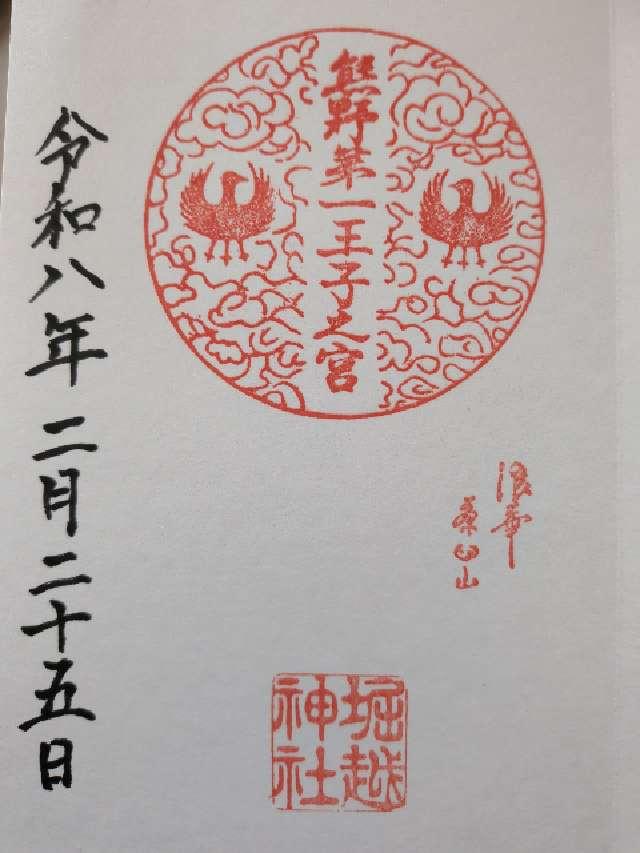 熊野第一王子之宮
浪華
茶臼山
堀越
神社
令和八年二月二十五日